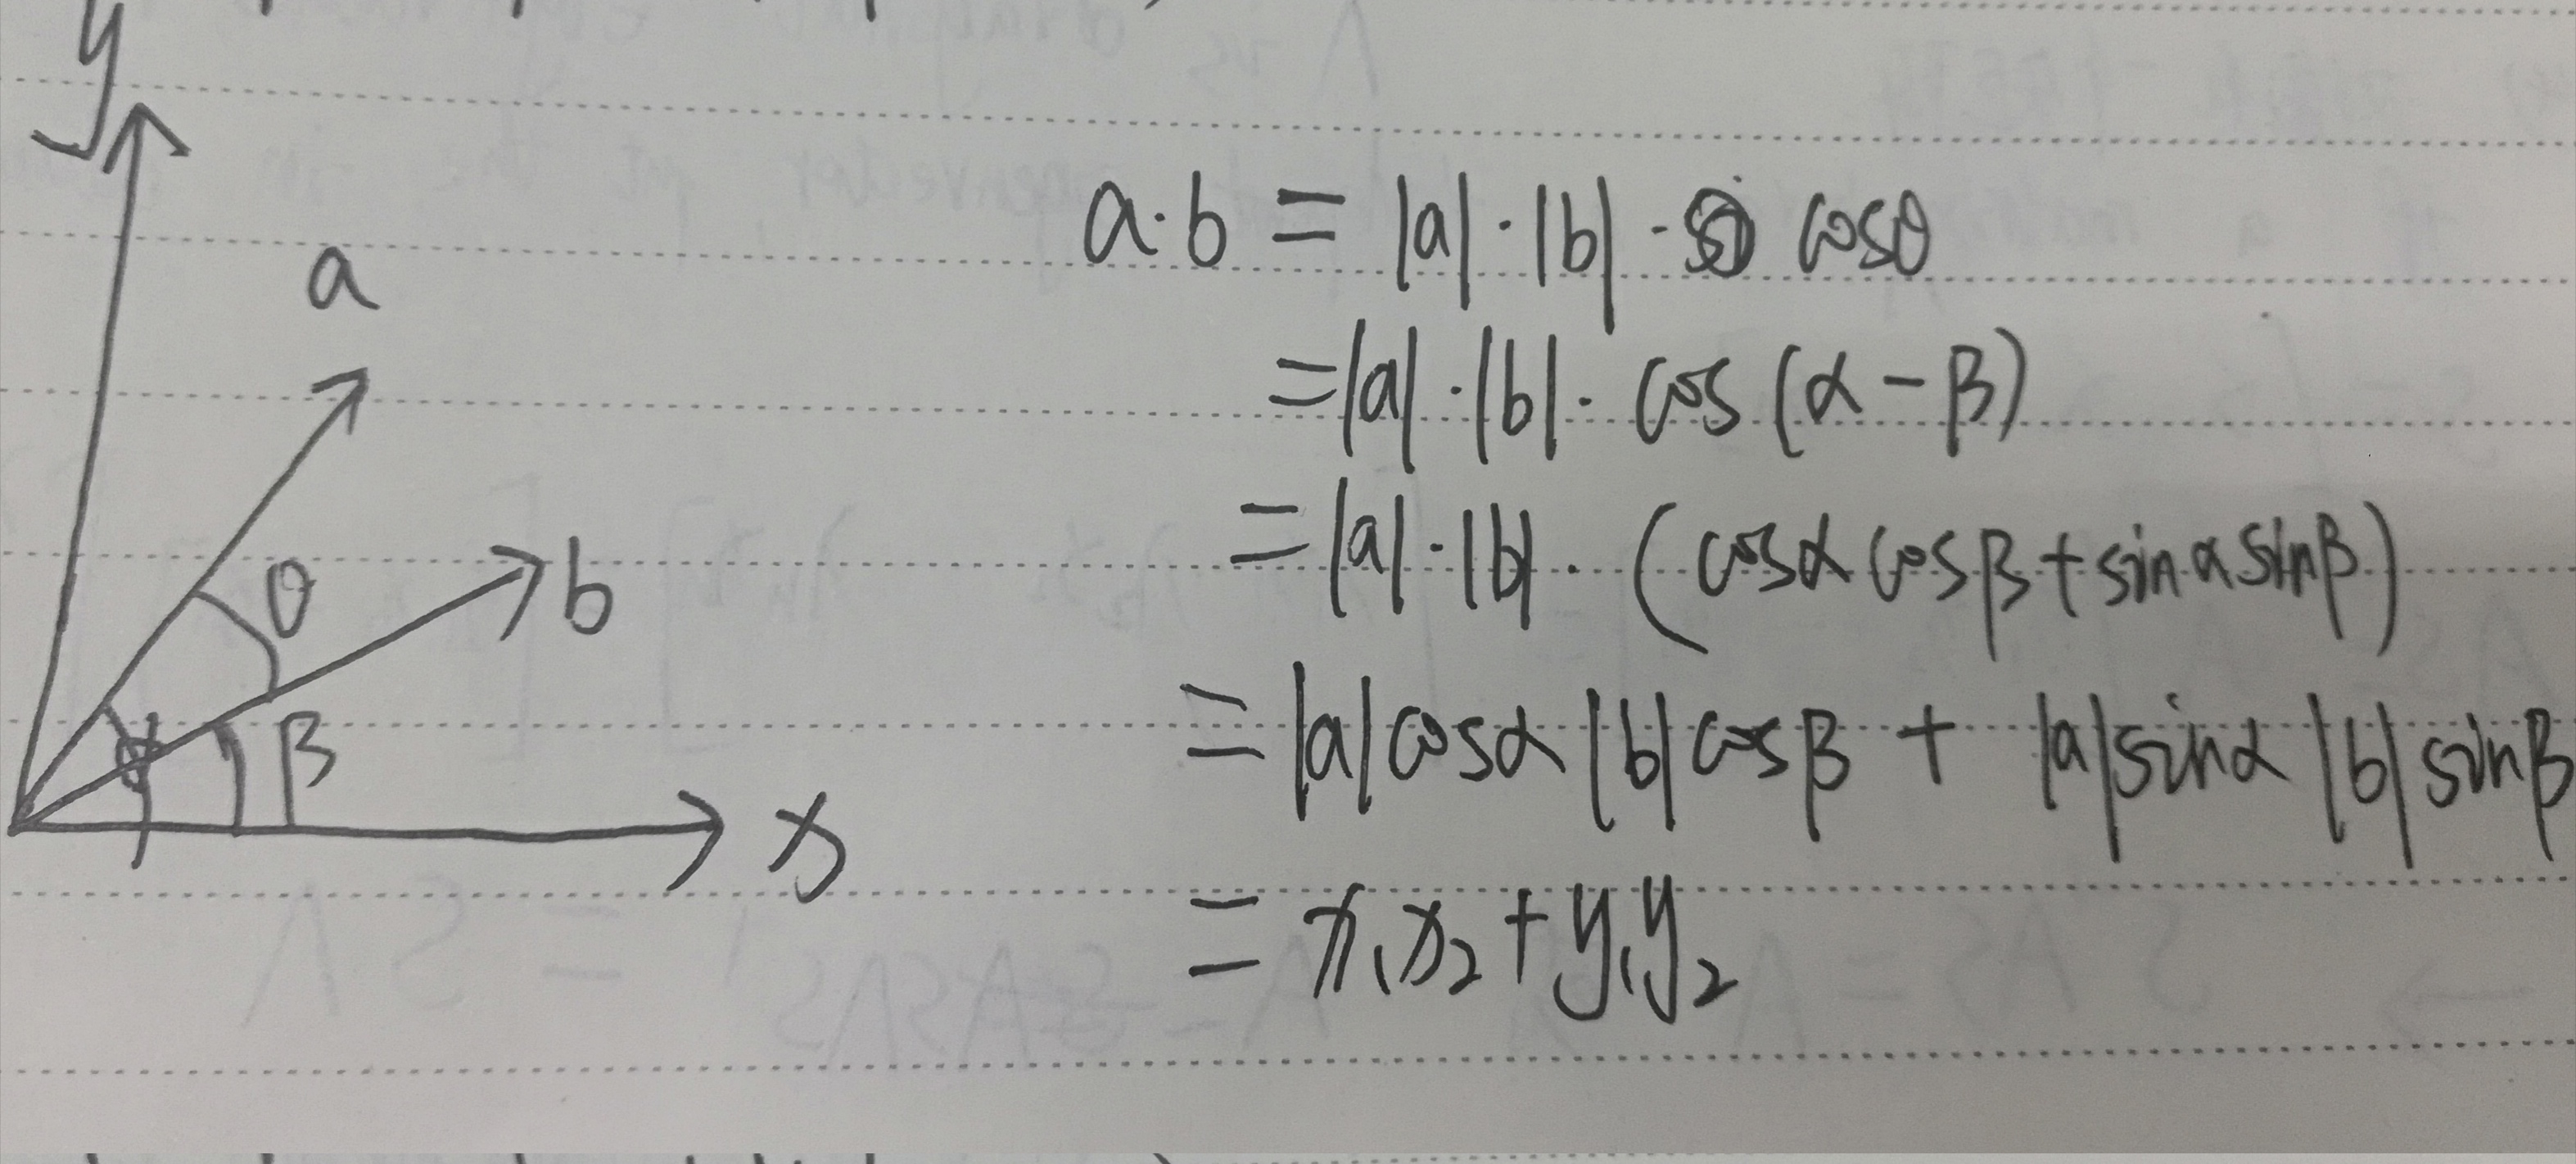 y
a
θ
b
α
β
x
a·b = |a|·|b|· cosθ
=|a|·|b|· cos(α-β)
=|a|·|b|·(cosα cosβ+sinα sinβ)
=|a|cosα|b|cosβ + |a|sinα|b|sinβ
= x₁x₂+y₁y₂